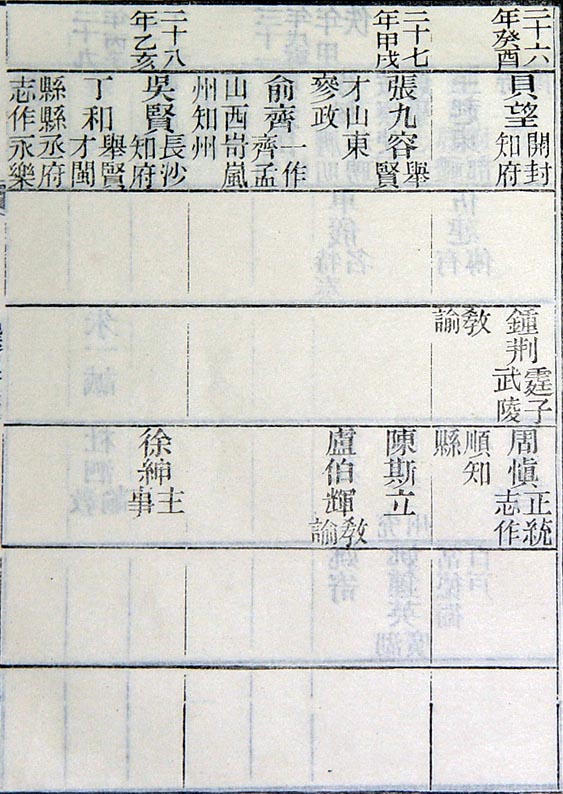 二十六年癸酉
貝望 開封知府
鍾荆 霆子武陵
教諭
周愼 正統志作
順知縣
二十七年甲戌
張九容 舉賢
才山東參政
俞齊 一作齊孟
山西岢嵐州知州
陳斯立
盧伯輝 教諭
二十八年乙亥
吳賢 長沙知府
丁和 舉賢才閩
縣縣丞府志作永樂
徐紳 主事